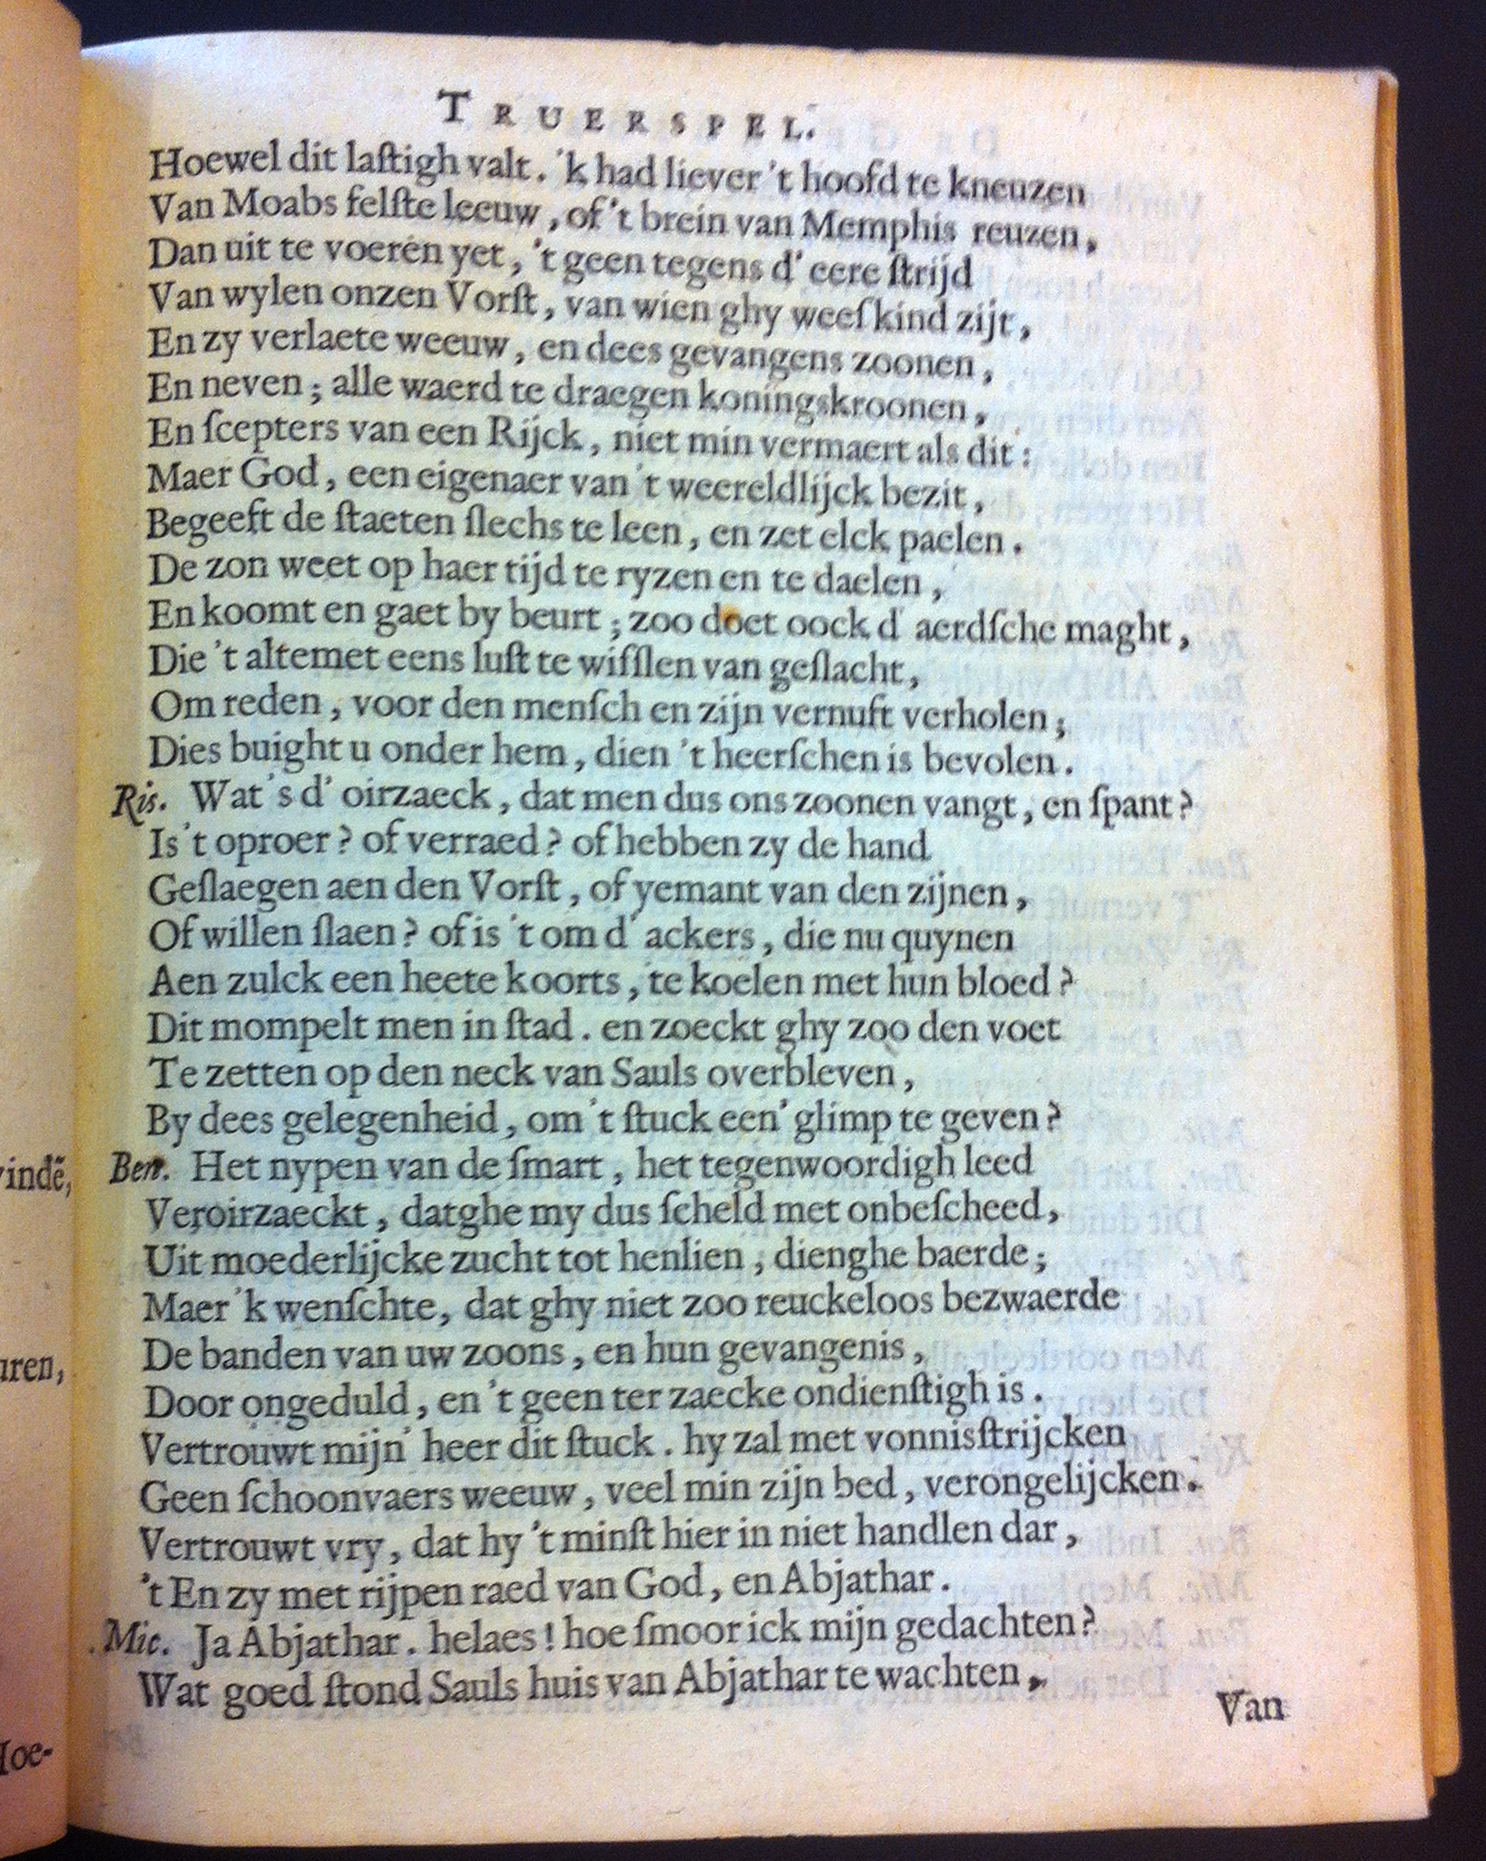 TRUERSPEL.
Hoewel dit laſtigh valt. 'k had liever 't hoofd te kneuzen
Van Moabs felſte leeuw, of 't brein van Memphis reuzen,
Dan uit te voeren yet, 't geen tegens d' eere ſtrijd
Van wylen onzen Vorſt, van wien ghy weeſkind zijt,
En zy verlaete weeuw, en dees gevangens zoonen,
En neven; alle waerd te draegen koningskroonen,
En ſcepters van een Rijck, niet min vermaert als dit:
Maer God, een eigenaer van 't weereldlijck bezit,
Begeeft de ſtaeten ſlechs te leen, en zet elck paelen.
De zon weet op haer tijd te ryzen en te daelen,
En koomt en gaet by beurt; zoo doet oock d' aerdſche maght,
Die 't altemet eens luſt te wiſſlen van geſlacht,
Om reden, voor den menſch en zijn vernuft verholen;
Dies buight u onder hem, dien 't heerſchen is bevolen.
Ris. Wat's d' oirzaeck, dat men dus ons zoonen vangt, en ſpant?
Is 't oproer? of verraed? of hebben zy de hand
Geſlaegen aen den Vorſt, of yemant van den zijnen,
Of willen ſlaen? of is 't om d' ackers, die nu quynen
Aen zulck een heete koorts, te koelen met hun bloed?
Dit mompelt men in ſtad. en zoeckt ghy zoo den voet
Te zetten op den neck van Sauls overbleven,
By dees gelegenheid, om 't ſtuck een' glimp te geven?
Ben. Het nypen van de ſmart, het tegenwoordigh leed
Veroirzaeckt, datghe my dus ſcheld met onbeſcheed,
Uit moederlijcke zucht tot henlien, dienghe baerde;
Maer 'k wenſchte, dat ghy niet zoo reuckeloos bezwaerde
De banden van uw zoons, en hun gevangenis,
Door ongeduld, en 't geen ter zaecke ondienſtigh is.
Vertrouwt mijn' heer dit ſtuck. hy zal met vonnisſtrijcken
Geen ſchoonvaers weeuw, veel min zijn bed, verongelijcken.
Vertrouwt vry, dat hy 't minſt hier in niet handlen dar,
't En zy met rijpen raed van God, en Abjathar.
Mic. Ja Abjathar. helaes! hoe ſmoor ick mijn gedachten?
Wat goed ſtond Sauls huis van Abjathar te wachten,
Van
vindē,
uren,
Hoe-